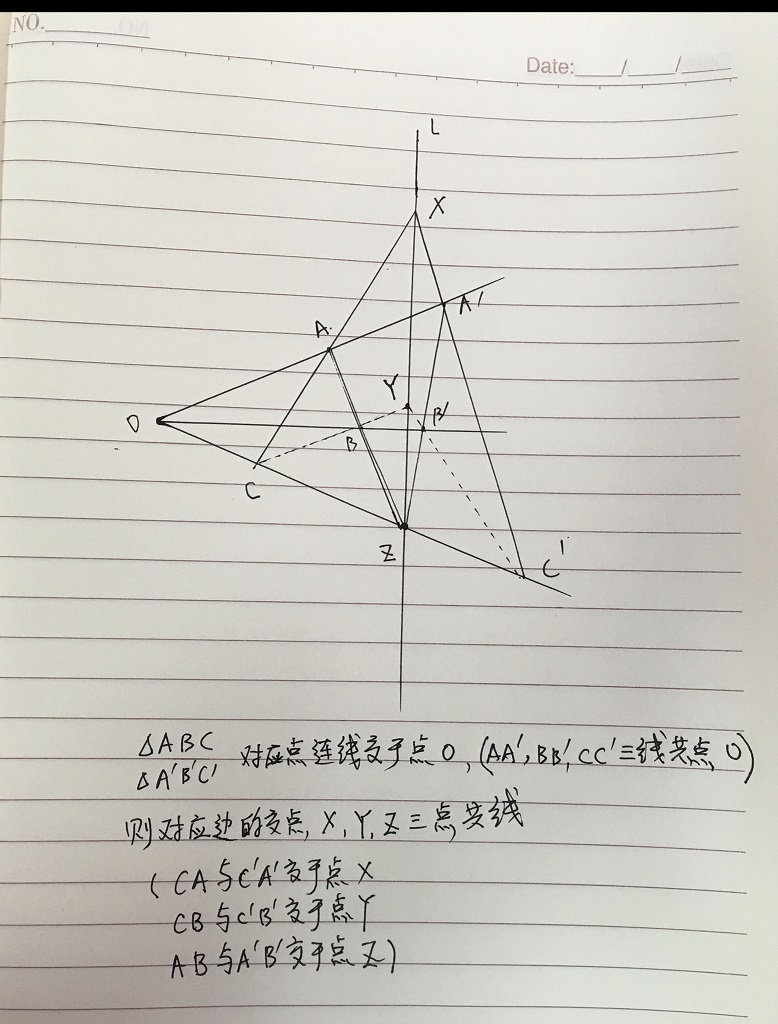 NO.
Date: / /
L
X
A'
A
Y
O
B
B'
C
Z
C'
△ABC
△A'B'C' 对应点连线交于点O, (AA', BB', CC'三线共点O)
则对应边的交点, X, Y, Z三点共线
( CA与C'A'交于点X
CB与C'B'交于点Y
AB与A'B'交于点Z)